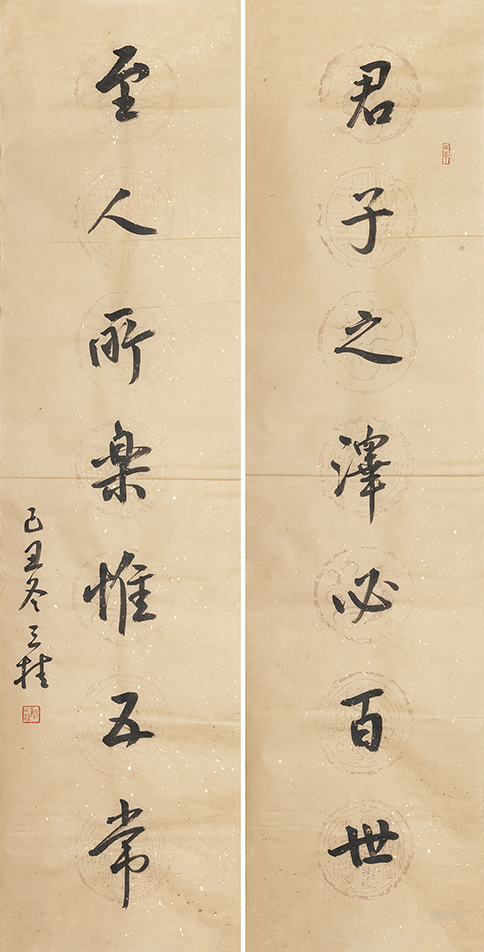 君子之澤必百世
至人所樂惟五常
己丑冬三桂